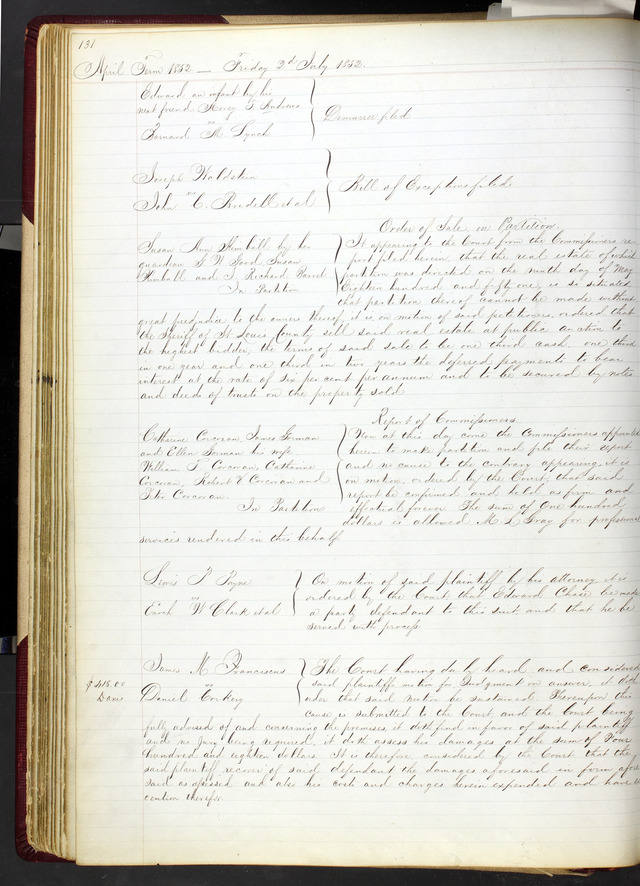 131
April Term 1852 — Friday 2d July 1852.
Edward an infant by his
next friend Henry T. Andrews
vs
Bernard M. Lynch
Demurrer filed
Joseph Waldstein
vs
John C. Rundell et al
Bill of Exceptions filed
Order of Sale in Partition
Susan Ann Kimball by her
guardian Susan
Kimball and J. Richard
In Partition
It appearing to the Court from the Commissioners re
port filed herein that the real estate of which
partition was directed on the ninth day of May
Eighteen hundred and fifty one, is so situated
that partition thereof cannot be made without
great prejudice to the owners thereof, it is on motion of said petitioners, ordered that
the Sheriff of St Louis County sell said real estate at public auction to
the highest bidder, the terms of said sale to be one third cash one third
in one year and one third in two years the deferred payments to bear
interest at the rate of six per cent per annum and to be secured by notes
and deeds of trust on the property sold
Report of Commissioners
Catharine Corcoran James Gorman
and Ellen Gorman his wife
William T. Corcoran, Catharine
Corcoran, Robert E Corcoran and
Peter Corcoran
In Partition
Now at this day come the Commissioners appointed
herein to make partition and file their report
and no cause to the contrary appearing, it is
on motion, ordered by the Court, that said
report be confirmed and held as firm and
effectual forever The sum of One hundred
dollars is allowed M. L. Gray for professional
services rendered in this behalf
Lewis P
vs
W Clark et al
On motion of said plaintiff by his attorney it is
ordered by the Court that Edward Chase be made
a party defendant to this suit and that he be
served with process
$418.00
Dams
James M Franciscus
vs
Daniel Corkery
The Court having duly heard and considered
said plaintiffs motion for Judgment on answer, it doth
order that said motion be sustained. Whereupon this
cause is submitted to the Court, and the Court being
fully advised of and concerning the premises, it doth find in favor of said plaintiff
and no Jury being required, it doth assess his damages at the sum of Four
hundred and eighteen dollars. It is therefore considered by the Court that the
said plaintiff recover of said defendant the damages aforesaid in form afore
said assessed and also his costs and charges herein expended and have ex
ecution therefor.